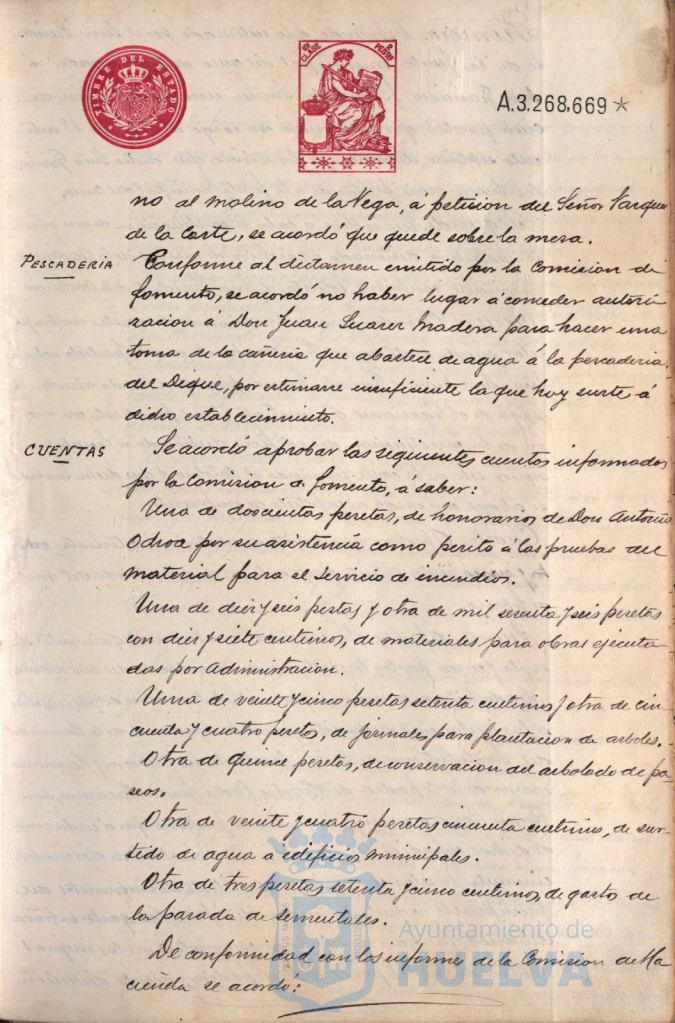 TIMBRE DEL ESTADO
CLASE
2
PESETAS
A.3.268.669 *
no al molino de la Vega, á peticion del Señor Vazquez
de la Corte, se acordó que quede sobre la mesa.
PESCADERIA
Conforme al dictamen emitido por la Comision de
fomento, se acordó no haber lugar á conceder autori
zacion á Don Juan Suarez Madera para hacer una
toma de la cañeria que abastece de agua á la pescaderia
del Dique, por estimarse insuficiente la que hoy surte á
dicho establecimiento.
CUENTAS
Se acordó aprobar las siguientes cuentas informadas
por la Comision de fomento, á saber:
Una de doscientas pesetas, de honorarios de Don Antonio
por su asistencia como perito á las pruebas del
material para el servicio de incendios.
Una de diez y seis pestas y otra de mil setenta y seis pesetas
con diez y siete centimos, de materiales para obras ejecuta-
das por administracion.
Una de veinte y cinco pesetas setenta centimos y otra de cin
cuenta y cuatro pesetas, de jornales para plantacion de arboles.
Otra de quince pesetas, de conservacion del arbolado de pa-
seos.
Otra de veinte y cuatro pesetas cincuenta centimos, de sur-
tido de agua a edificios municipales.
Otra de tres pesetas setenta y cinco centimos, de gasto de
la parada de sementales.
De conformidad con los informes de la Comision de Ha
cienda se acordo:
Ayuntamiento de
HUELVA